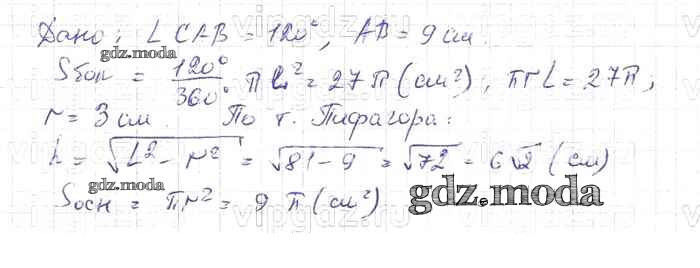 Дано: ∠CAB = 120°, AB = 9 см.
Sбок = 120°/360° π L² = 27 π (см²); πrL = 27π,
r = 3 см. По т. Пифагора:
h = √(L² - r²) = √(81 - 9) = √72 = 6√2 (см)
Sосн = πr² = 9 π (см²)
gdz.moda
gdz.moda
gdz.moda
gdz.moda